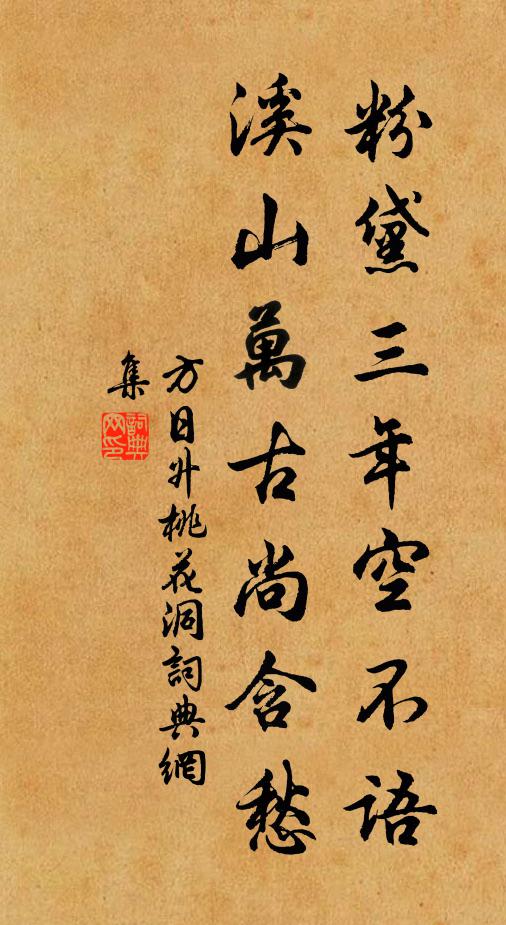 粉黛三年空不语
溪山萬古尚含愁
方日升桃花洞詞典網
集
詞典
网印